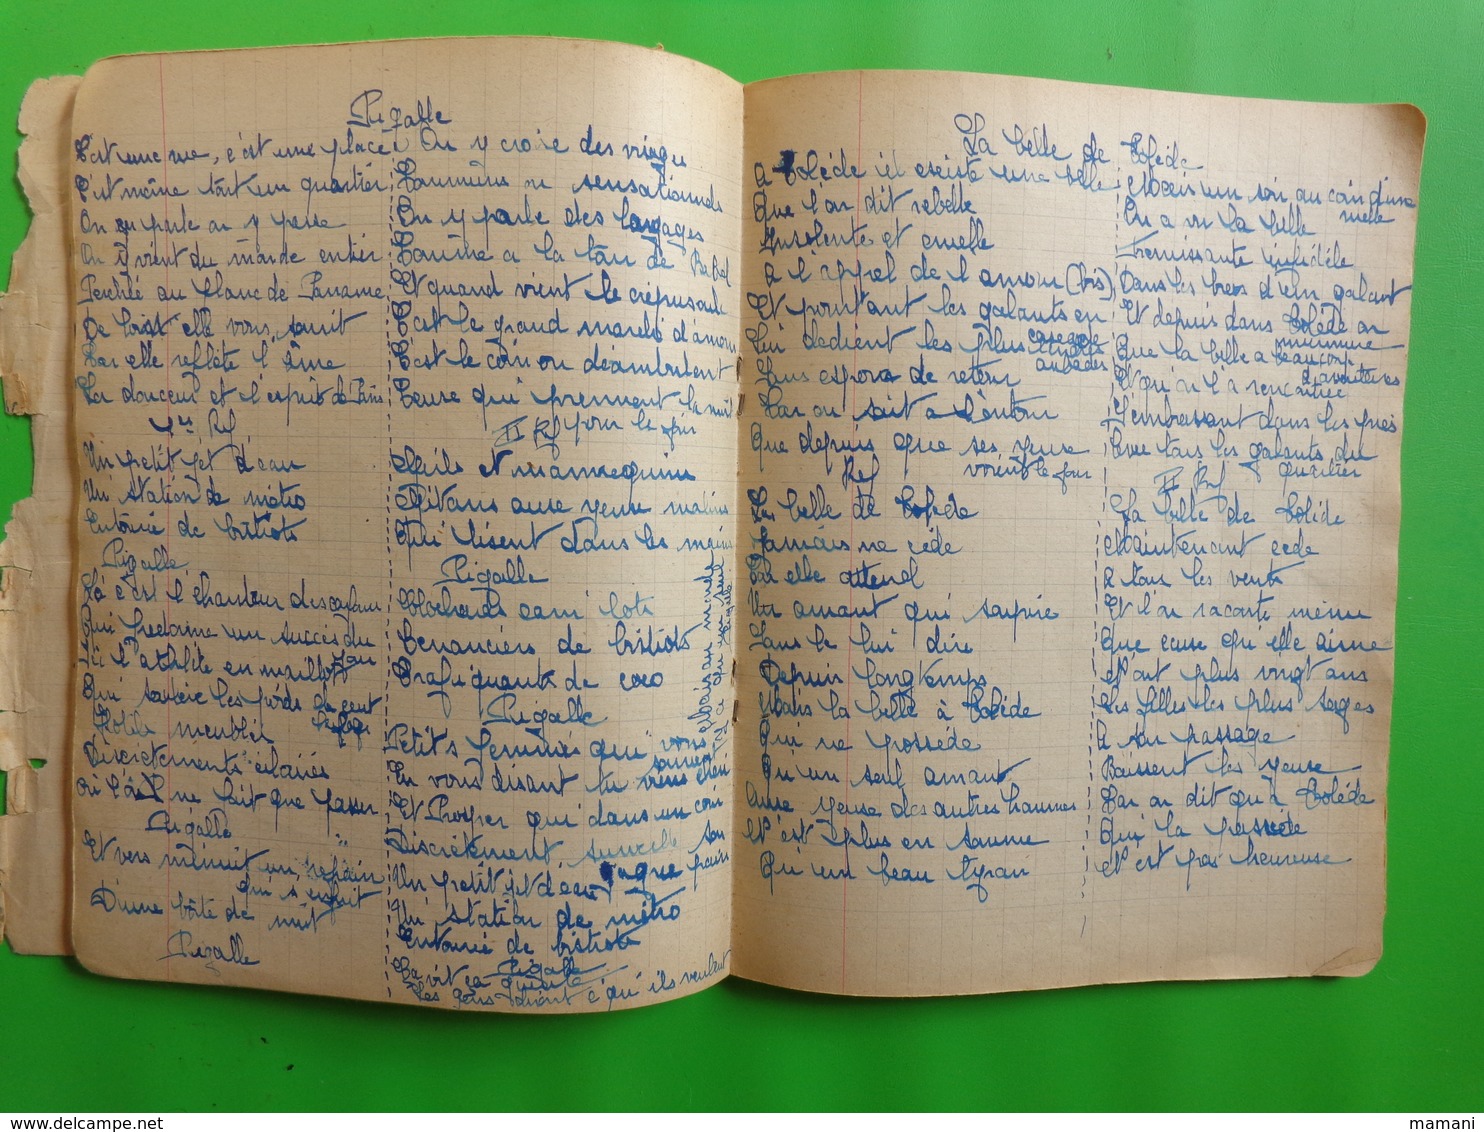 Pigalle
C'est une rue, c'est une place
C'est même tout un quartier
On en parle on y passe
On y vient du monde entier
Perchée au flanc de Paname
De loin elle vous sourit
Car elle reflète l'âme
La douceur et l'esprit de Paris
1er Ref
Un petit jet d'eau
Un station de métro
Entourée de bistrots
Pigalle
Là c'est l'chanteur des carrefours
Qui fredonne un succès du jour
Ici l'athlète en maillot
Qui soulève les poids de cent kilogs
Hotels meublés
Discrètements éclairés
où l'on ne fait que passer
Pigalle
Et vers minuit un refrain
qui s'enfuit
D'une boîte de nuit
Pigalle
On y croise des visages
Communs ou sensationnels
On y parle des langages
Comme a la tour de Babel
Et quand vient le crépuscule
C'est le grand marché d'amour
C'est le coin ou déambulent
Ceux qui prennent la nuit
pour le jour
II Ref
Girls et mannequins
Gitans aux yeux malins
Qui lisent dans les mains
Pigalle
Clochards camelots
Tenanciers de bistrots
Trafiquants de coco
Pigalle
Petit's femmes qui vous sourient
En vous disant tu viens chéri
Et Prosper qui dans un coin
Discrètement surveille son
gagne pain
Un petit jet d'eau
Un' station de métro
Entourée de bistrots
Pigalle
Ca vit ca gueule
Les gens diront c'qu'ils veulent
Mais au monde
Y a qu'un seul
Pigalle
La belle de Tolède
A Tolède il existe une belle
Que l'on dit rebelle
Insolente et cruelle
A l'appel de l'amour (bis)
Et pourtant les galants en
cascade
Lui dedient les plus tendres
aubades
Sans espoir de retour
Car on sait a l'entour
Que depuis que ses yeux
voient le jour
Ref
La belle de Tolède
Jamais ne cède
Car elle attend
Un amant qui soupire
Sans le lui dire
Depuis longtemps
Mais la belle à Tolède
Qui ne possède
Qu'un seul amant
Aux yeux des autres hommes
N'est plus en somme
Qu'un beau tyran
Mais un soir au coin d'une
ruelle
On a vu la belle
Fremissante infidèle
Dans les bras d'un galant
Et depuis dans Tolède on
murmure
Que la belle a beaucoup
d'aventures
Et qu'on l'a rencontrée
S'embrassant dans les prés
Avec tous les galants du
quartier
II Ref
La belle de Tolède
Maintenant cède
A tous les vents
Et l'on raconte même
Que ceux qu'elle aime
N'ont plus vingt ans
Les filles les plus sages
A son passage
Baissent les yeux
Car on dit qu'à Tolède
Qui la possède
N'est pas heureux
www.delcampe.net
mamani